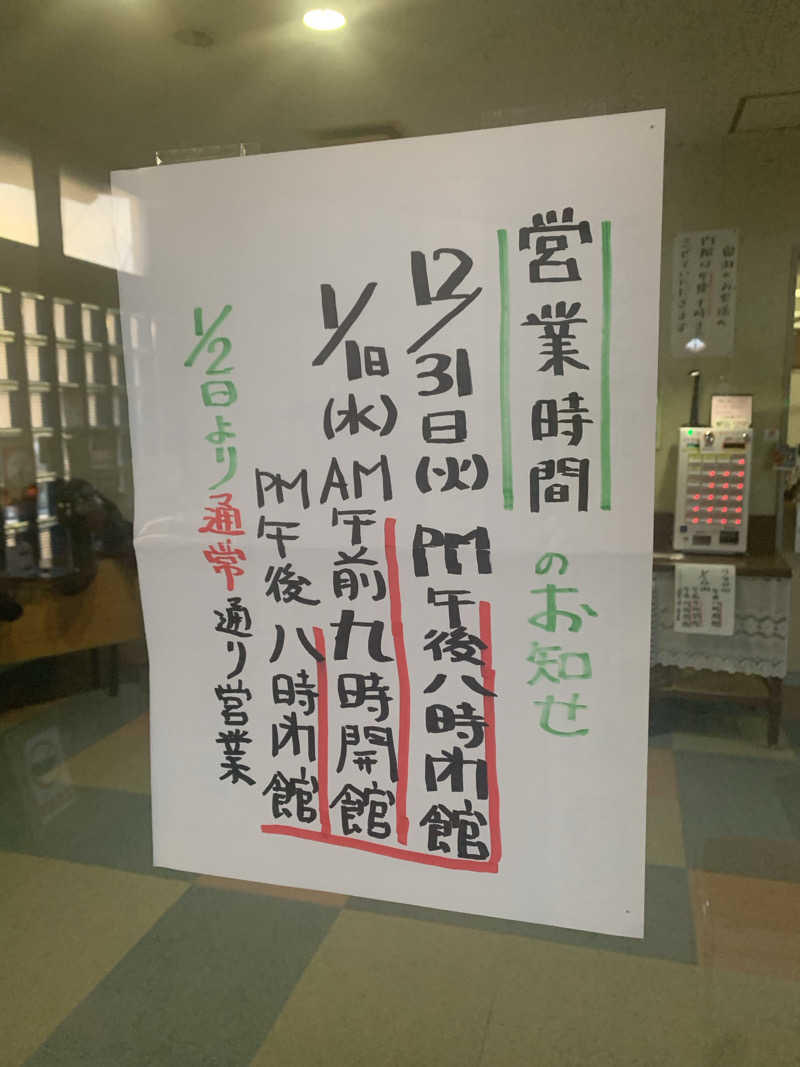 営業時間のお知せ
12/31日(火)PM午後八時閉館
1/1日(水)AM午前九時開館
PM午後八時閉館
1/2日より通常通り営業